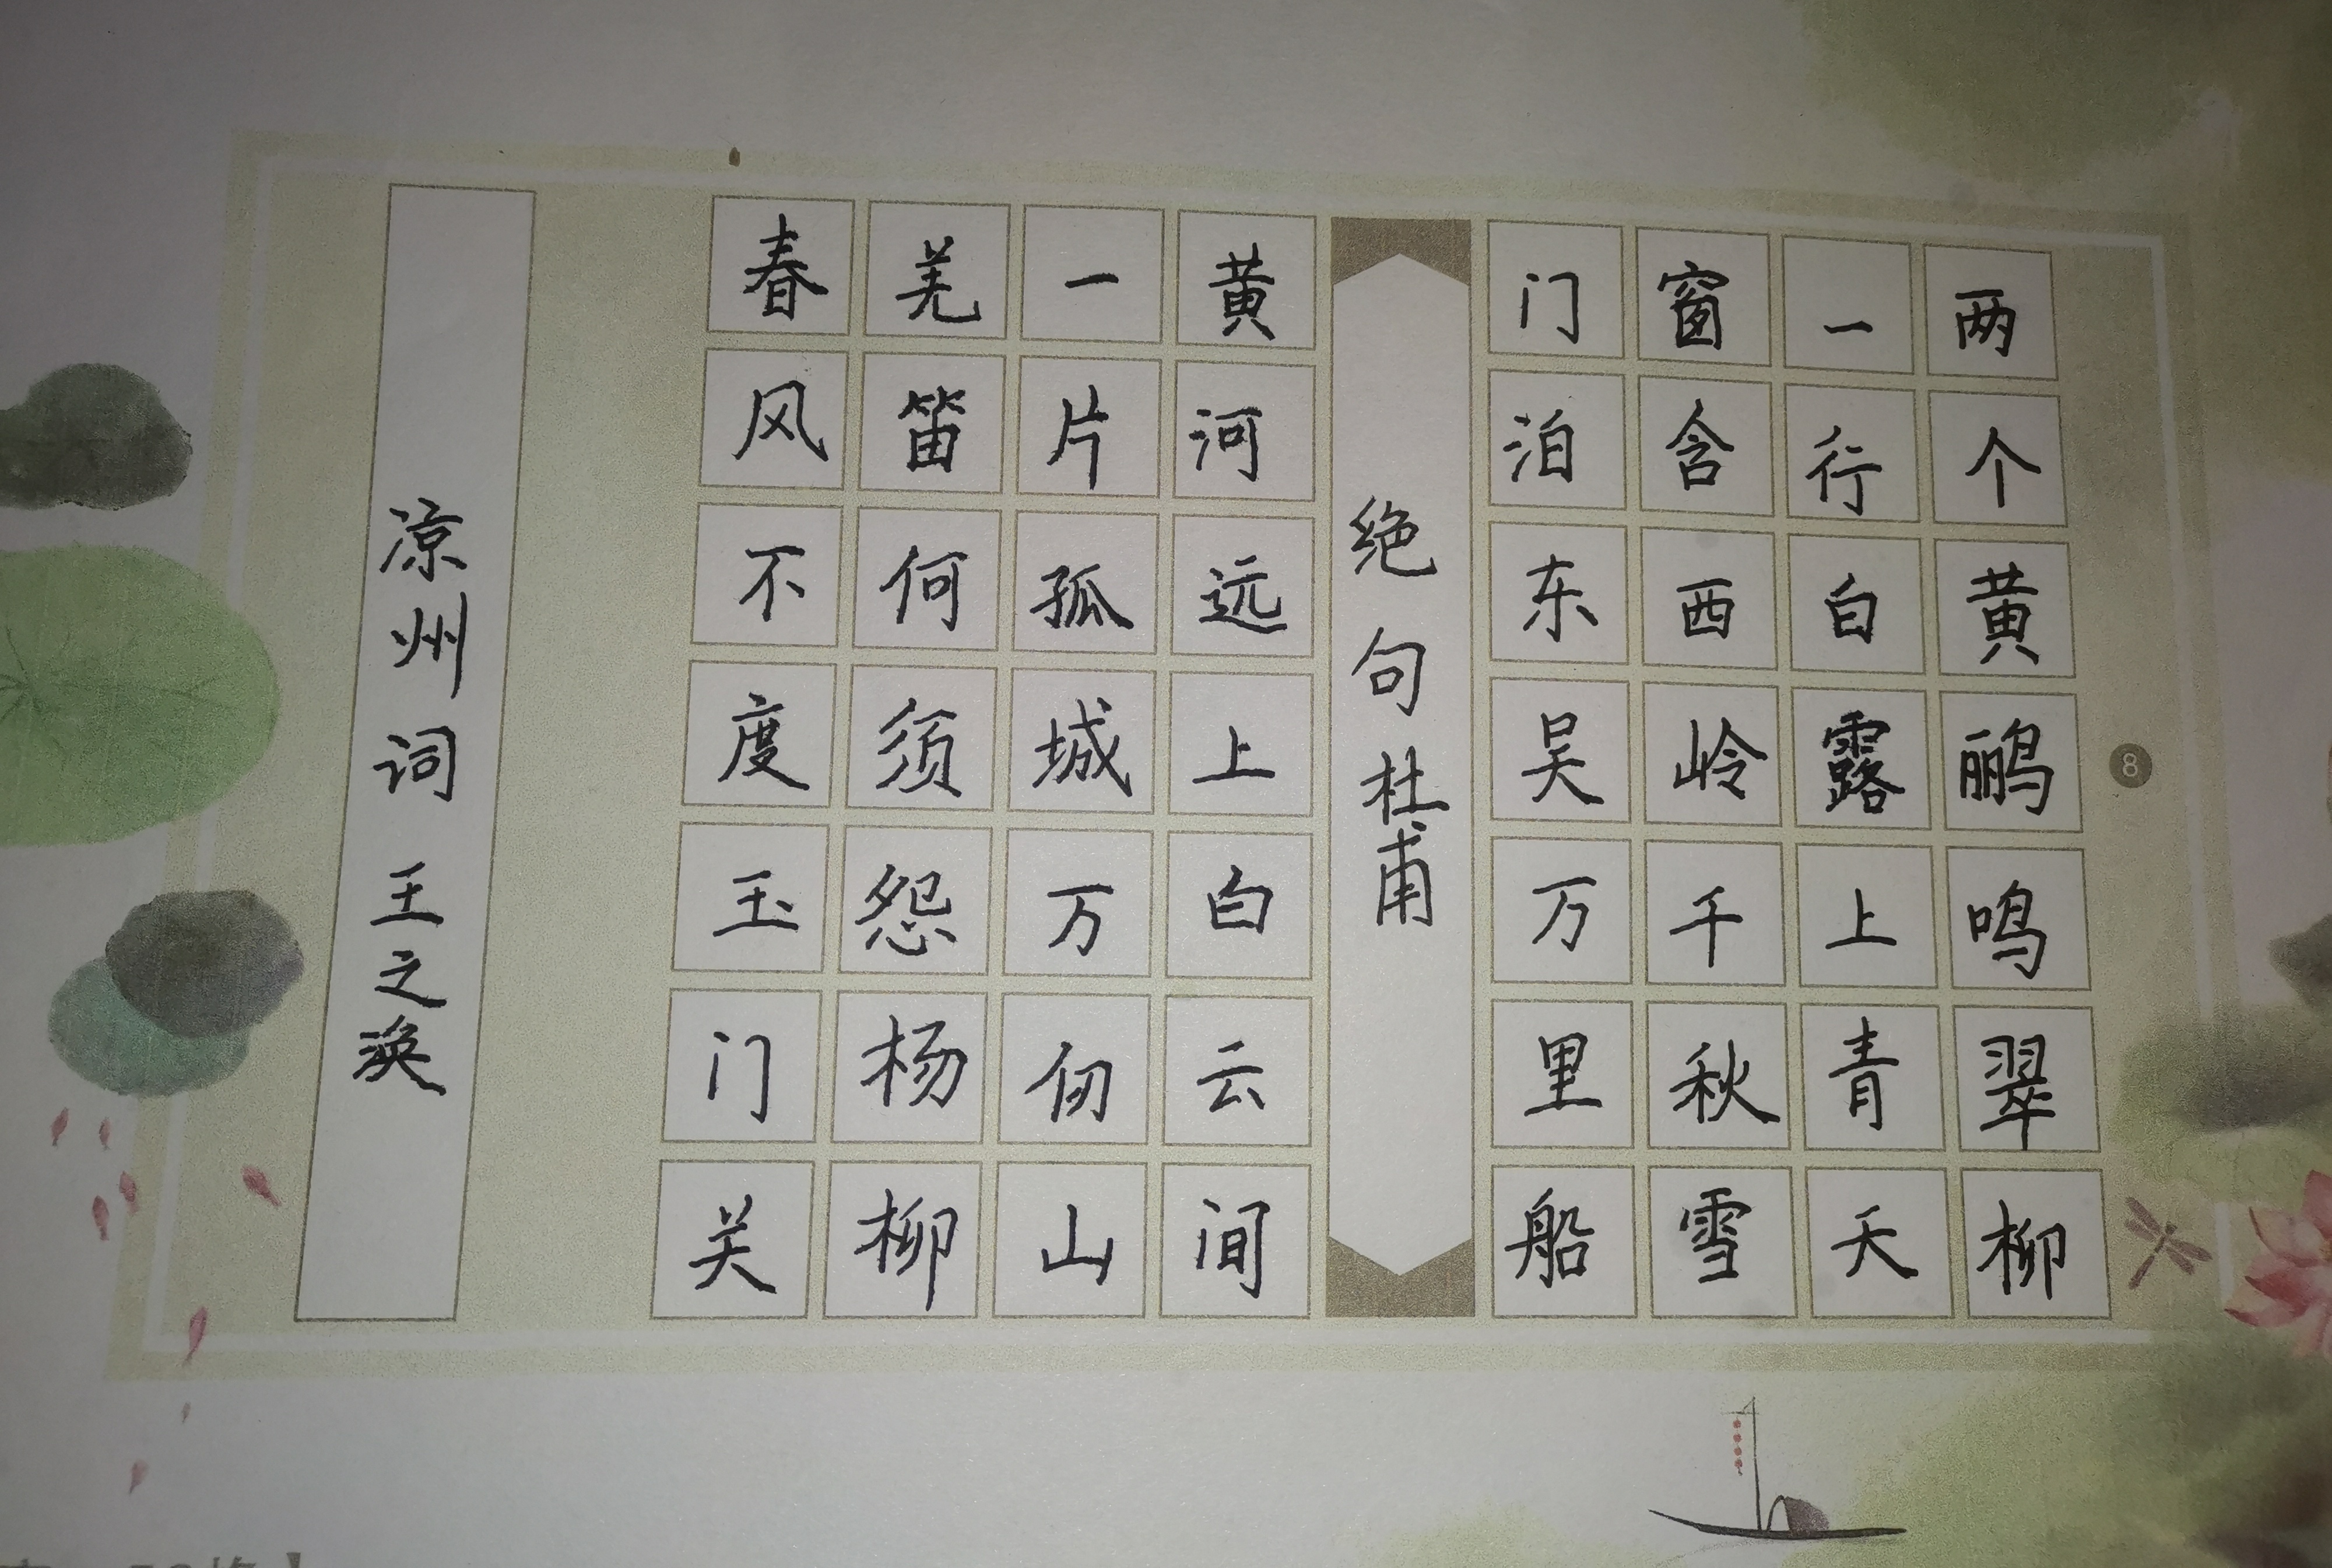 8
两个黄鹂鸣翠柳
一行白露上青天
窗含西岭千秋雪
门泊东吴万里船
绝句 杜甫
黄河远上白云间
一片孤城万仞山
羌笛何须怨杨柳
春风不度玉门关
凉州词 王之涣